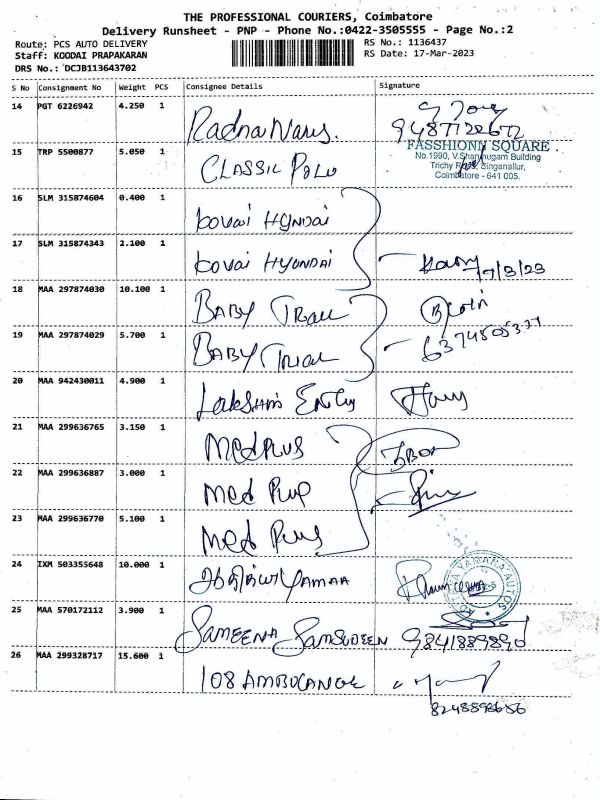 THE PROFESSIONAL COURIERS, Coimbatore
Delivery Runsheet - PNP - Phone No.:0422-3505555 - Page No.:2
Route: PCS AUTO DELIVERY
Staff: KOODAI PRAPAKARAN
DRS No.: DCJB113643702
RS No.: 1136437
RS Date: 17-Mar-2023
S No Consignment No Weight PCS Consignee Details Signature
14 PGT 6226942 4.250 1
9487122672
15 TRP 5500877 5.050 1 CLASSIC POLO
FASSHIONN SQUARE
No.1990, V.Shanmugam Building
Trichy Road, Singanallur,
Coimbatore - 641 005.
16 SLM 315874604 0.400 1 kovai HYUNDAI
17 SLM 315874343 2.100 1 kovai HYUNDAI 17/3/23
18 MAA 297874030 10.100 1 BABY
19 MAA 297874029 5.700 1 BABY
20 MAA 942430011 4.900 1
21 MAA 299636765 3.150 1 MedPLUS
22 MAA 299636887 3.000 1 Med Plus
23 MAA 299636770 5.100 1 Med Plus
24 IXM 503355648 10.000 1 YAMAA
25 MAA 570172112 3.900 1 SAMEENA SAMSUDEEN 9841889890
26 MAA 299328717 15.600 1 108 AMBULANCE
8248898656